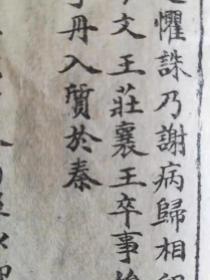 懼誅乃謝病歸相
文王莊襄王卒事
丹入質於秦